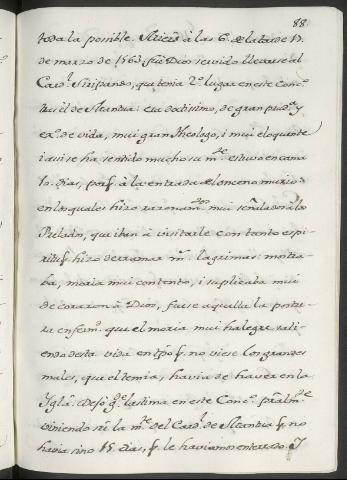 88
toda la posible. Miercoles à las 6. de la tarde 17.
de marzo de 1563. fue Dios servido llevarse al
Card.l Seripando, que tenia 2.º lugar en este Conc.º
tras el de Mantua: era doctisimo, de gran prud.ª y
ex.º de vida, mui gran Theologo, i mui eloquente
i asi se ha sentido mucho su m.te estuvo en cama
10. dias, porq̃ à la entrada del onceno murio:
en los quales hizo razonam.tos mui señalados à los
Prelados, que iban à visitarle con tanto espi-
ritu q̃ hizo derramar m.s lagrimas: mostra-
ba, moria mui contento, i suplicaba mui
de corazon à Dios, fuese aquella la postre-
ra enferm.d que el moria mui halegre sali-
endo desta vida en tpõ q̃ no viese los grandes
males, que el temia, havia de haver en la
Ygla. Dejo g.e lastima en este Conc.º pralm.te
viniendo tras la m.te del Card.l de Mantua q̃ no
havia sino 15. dias, q̃ le haviamos enterrado. Y